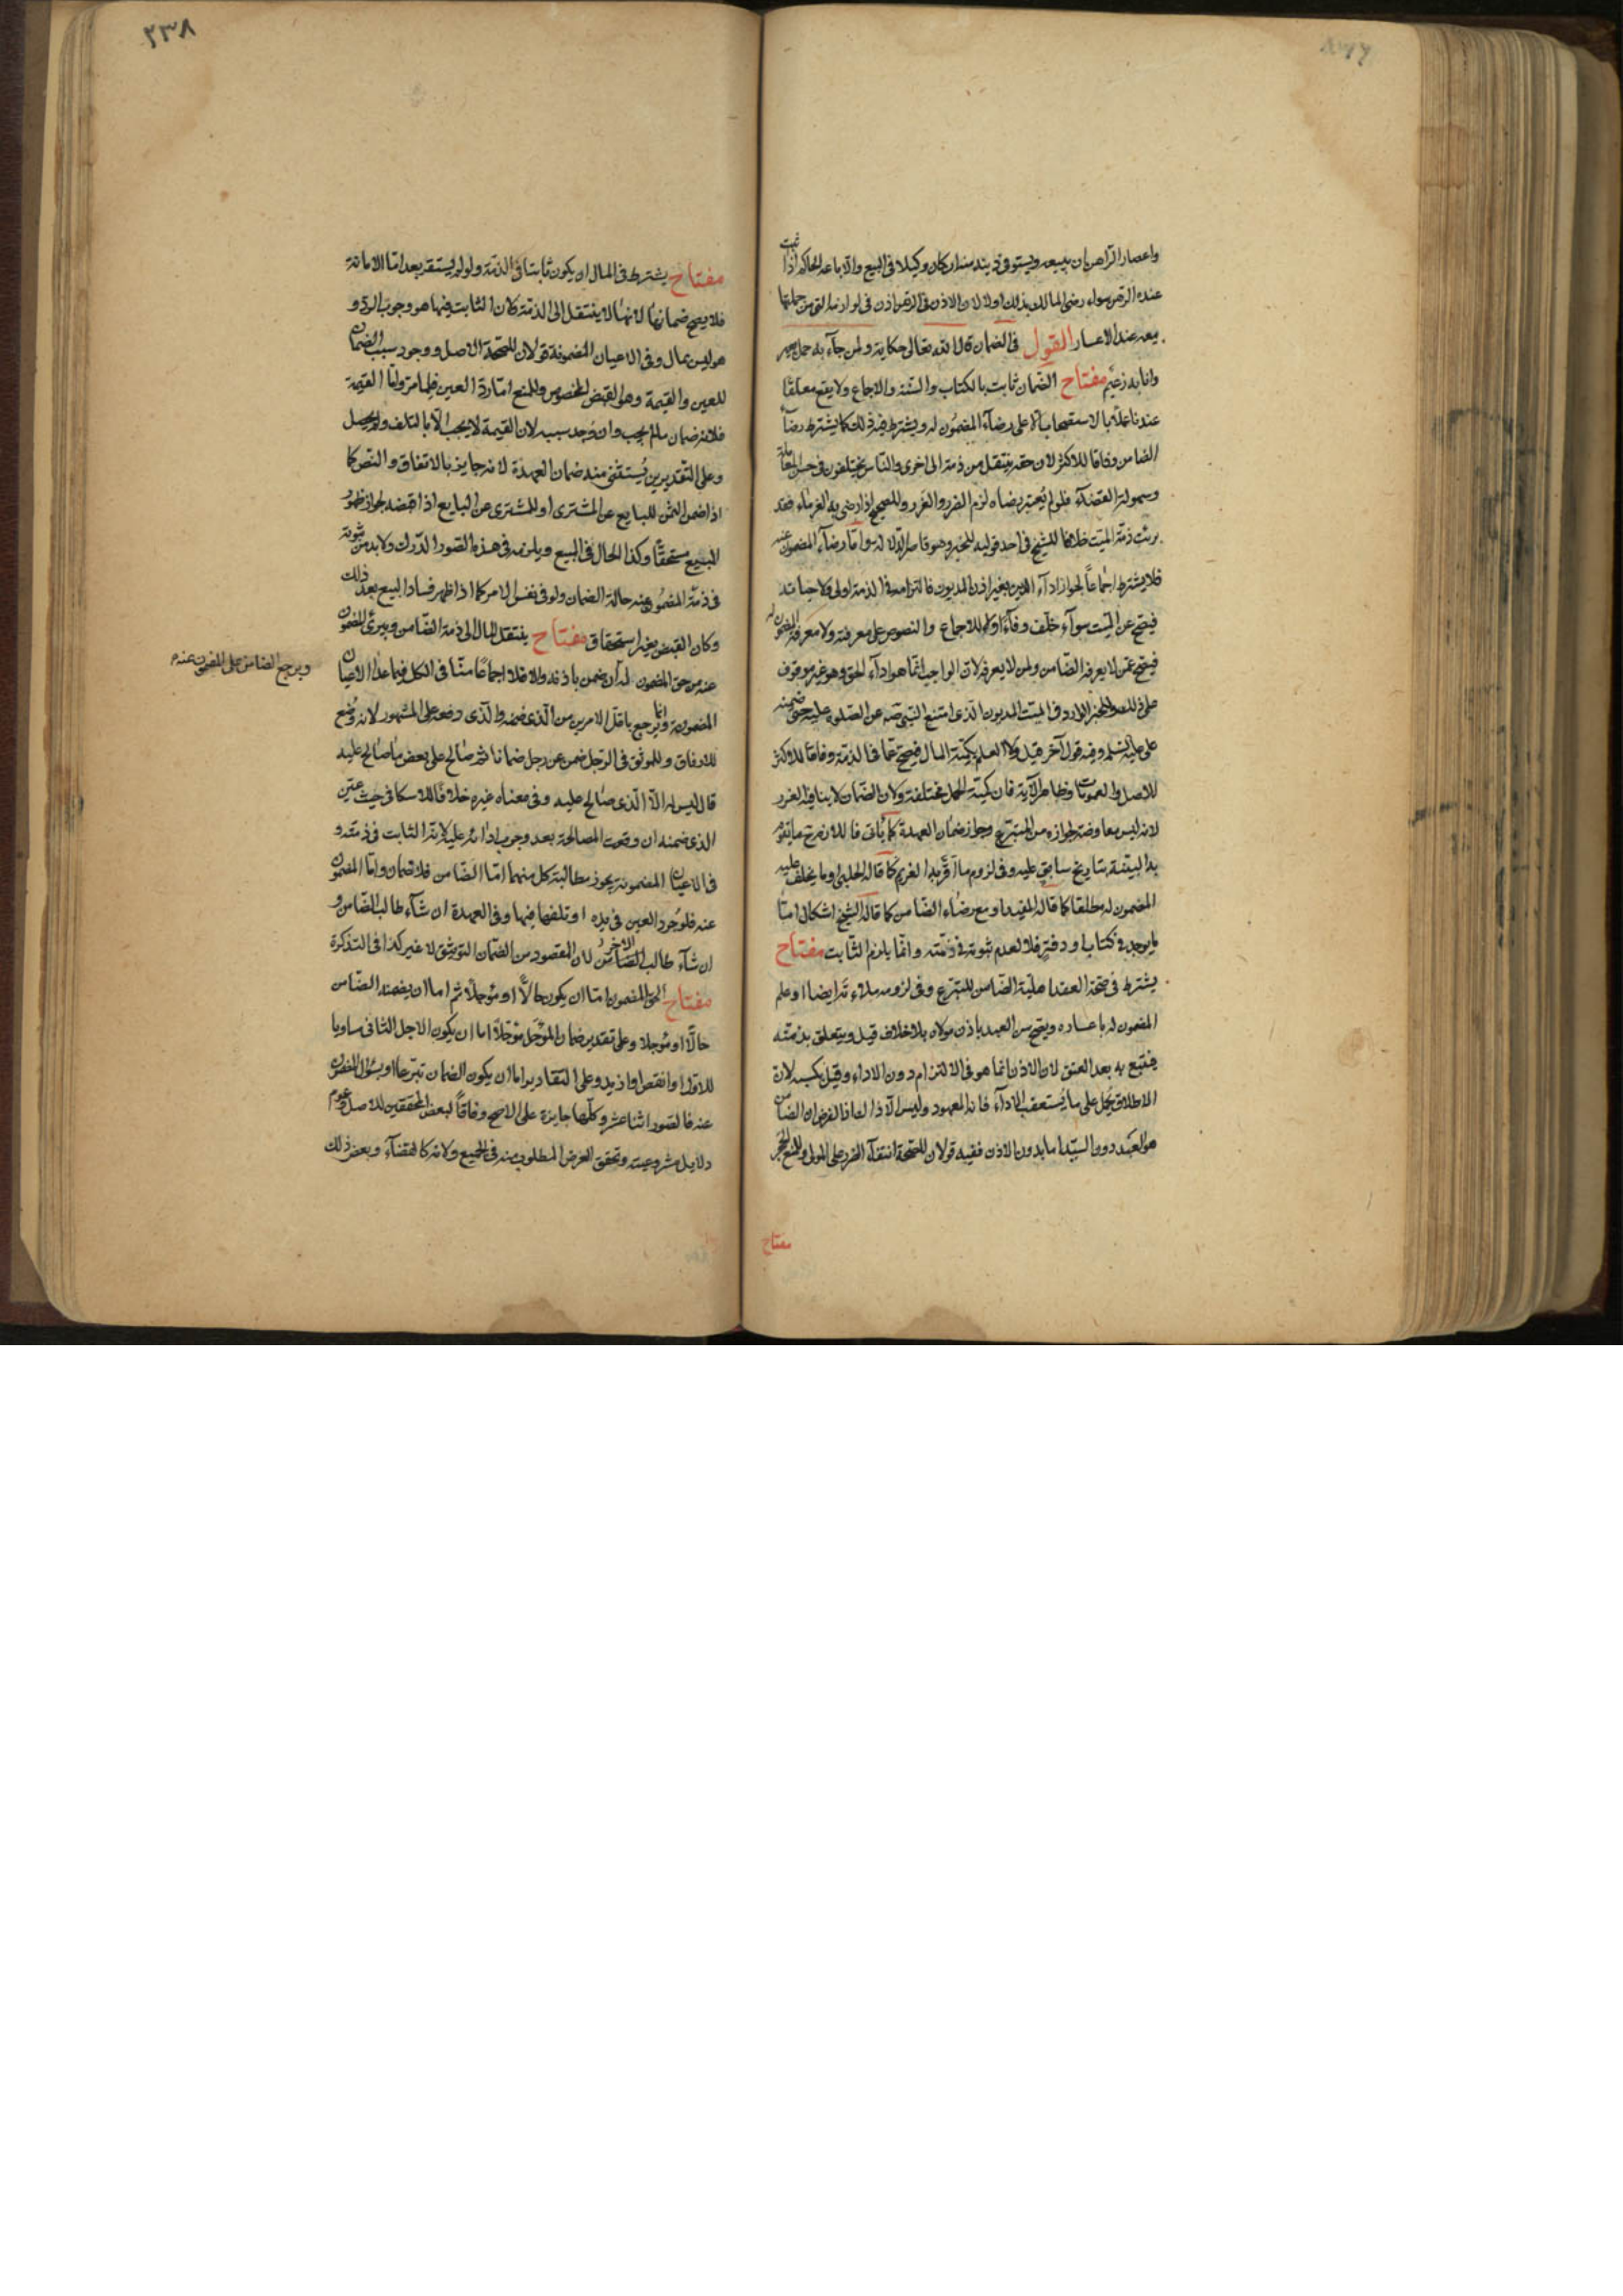 واعسار الراهن ان يبيعه ويستوفى دينه منه ان كان وكيلا فى البيع والا باعه الحاكم اذا ثبت
عنده الرهن سواء رضى المالك بذلك اولا لان الاذن فى الرهن اذن فى لوازمه التى من جملتها
بيعه عند الاعسار القول فى الضمان قال الله تعالى حكاية ولمن جآء به حمل بعير
وانا به زعيم مفتاح الضمان ثابت بالكتاب والسنة والاجماع ولا يقع معلقا
عندنا عملا بالاستصحاب على رضآء المضمون له ويشترط فيه ذلك كما يشترط رضآء
الضامن وفاقا للاكثر لان حقه ينتقل من ذمة الى اخرى والناس يختلفون فى حسن المعاملة
وسهولة القضآء فلو لم يعتبر رضاه لزم الضرر والغرر وللصحيح اذا رضى به الغرماء فقد
برئت ذمة الميت خلافا للشيخ فى احد قوليه للخبر وهو قاصر الدلالة واما رضآء المضمون عنه
فلا يشترط اجماعا لجواز ادآء الدين بغير اذن المديون فالتزامه فى الذمة اولى ولا حياته
فيصح عن الميت سوآء خلف وفآءا اولا للاجماع والنصوص ولا معرفته ولا معرفة المضمون له
فيصح عمن لا يعرفه الضامن ولمن لا يعرفه لان الواجب انما هو ادآء الحق وهو غير موقوف
على ذلك وللخبر الوارد فى الميت المديون الذى امتنع النبى ص عن الصلوة عليه حتى ضمنه
على عليه السلم وفيه قول آخر قيل ولا العلم بكمية المال فيصح عما فى الذمة وفاقا للاكثر
للاصل والعمومات وظاهر الآية فان كمية الحمل مختلفة ولان الضمان لا ينافيه الغرر
لانه ليس معاوضة لجوازه من المتبرع وجاز ضمان العهدة كما يأتى فاللازم ح ما تقوم
به البينة بتاريخ سابق عليه وفى لزوم ما اقر به الغريم كما قاله الحلبى وما يحلف عليه
المضمون له مطلقا كما قاله المفيد او مع رضاء الضامن كما قاله الشيخ اشكال اما
ما يوجد فى كتاب او دفتر فلا لعدم ثبوته فى ذمته وانما يلزم الثابت مفتاح
يشترط فى صحة العقد اهلية الضامن للتبرع وفى لزومه ملاءته ايضا او علم
المضمون له باعساره ويصح من العبد باذن مولاه بلا خلاف قيل ويتعلق بذمته
فيتبع به بعد العتق لان الاذن انما هو فى الالتزام دون الاداء وقيل بكسبه لان
الاطلاق يحمل على ما يستعقب الادآء فانه المعهود وليس الاذ الفرض ان الضامن
هو العبد دون السيد اما بدون الاذن ففيه قولان للصحة انتفآء الضرر على المولى وللمنع الحجر
مفتاح
٢٣٨
مفتاح يشترط فى المال ان يكون ثابتا فى الذمة ولو لم يستقر بعد اما الامانة
فلا يصح ضمانها لانها لا ينتقل الى الذمة كان الثابت فيها هو وجوب الرد و
هو ليس بمال وفى الاعيان المضمونة قولان للصحة الاصل ووجود سبب الضمان
للعين والقيمة وهو القبض المخصوص وللمنع اما رد العين فلما مر واما القيمة
فلانه ضمان ما لم يجب وان وجد سببه لان القيمة لا يجب الا بالتلف ولم يحصل
وعلى التقديرين يستثنى منه ضمان العهدة لانه جايز بالاتفاق والنص كما
اذا ضمن الثمن للبايع عن المشترى او للمشترى عن البايع اذا قبضه لجواز ظهور
المبيع مستحقا وكذا الحال فى المبيع ويلزمه فى هذه الصور الدرك ولا بد من ثبوته
فى ذمة المضمون عنه حالة الضمان ولو فى نفس الامر كما اذا ظهر فساد البيع بعد ذلك
وكان القبض بغير استحقاق مفتاح ينتقل المال الى ذمة الضامن ويبرئ المضمون
عنه من حق المضمون له ان ضمن باذنه والا فلا اجماعا منا فى الكل فيما عدا الاعيان
ويرجع الضامن على المضمون عنه م
المضمونة وانما يرجع باقل الامرين من الذى ضمنه والذى دفعه على المشهور لانه وضع
للارفاق وللموثق فى الرجل ضمن عن رجل ضمانا ثم صالح على بعض ما صالح عليه
قال ليس له الا الذى صالح عليه وفى معناه غيره خلافا للاسكافى حيث عين
الذى ضمنه ان وقعت المصالحة بعد وجوب ادائه عليه لانه الثابت فى ذمته و
فى الاعيان المضمونة يجوز مطالبة كل منهما اما الضامن فلا ضمان واما المضمون
عنه فلوجود العين فى يده او تلفها فيها وفى العهدة ان شآء طالب الضامن و
ان شآء طالب الآخر لان المقصود من الضمان التوثيق لا غير كذا فى التذكرة
مفتاح الحق المضمون اما ان يكون حالا او مؤجلا ثم اما ان يضمنه الضامن
حالا او مؤجلا وعلى تقدير ضمان المؤجل مؤجلا اما ان يكون الاجل الثانى مساويا
للاول او انقص او ازيد وعلى التقادير اما ان يكون الضمان تبرعا او بسؤال المضمون
عنه فالصور اثنا عشر وكلها جايزة على الاصح وفاقا لبعض المحققين للاصل وعموم
دلايل مشروعيته وتحقق الغرض المطلوب منه فى الجميع ولانه كالقضآء وبعض ذلك